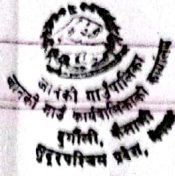 जानकी गाउँपालिका
गाउँ कार्यपालिकाको कार्यालय
दुर्गौली, कैलाली
सुदूरपश्चिम प्रदेश,